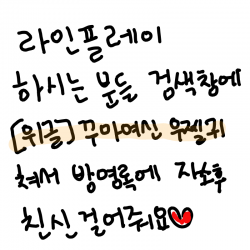 라인플레이
하시는 분들 검색창에
[위글] 꾸아여신 우쮈귀
쳐서 방명록에 자소후
친신걸어줘요